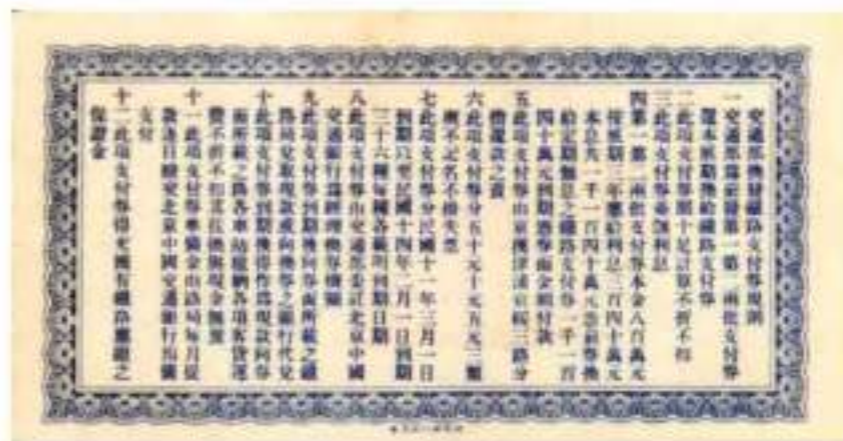 交通部換發鐵路支付券規則
一 交通部為前發第一第二兩批支付券
還本展期換給鐵路支付券
二 此項支付券期十足計算不折不扣
三 此項支付券並無利息
四 第一第二兩批支付券本金八百萬元
展期三年應給利息三百四十萬元
本息共一千一百四十萬元憑前券換
給定期無息之鐵路支付券一千一百
四十萬元到期憑券面金額付款
五 此項支付券由京漢津浦京綏三路分
擔還款之責
六 此項支付券分五十元十元五元三類
概不記名不掛失票
七 此項支付券分民國十一年三月一日
到期以至民國十四年二月一日到期
三十六種每種各載明到期日期
八 此項支付券由交通部委託北京中國
交通銀行為經理機關
九 此項支付券到期後向券面所載之鐵
路局兌取現款或向換券之銀行代兌
十 此項支付券到期後得作為現款向券
面所載之路各車站繳納各項客貨運
費不折不扣其找換與現金無異
十一 此項支付券準備金由路局每月提
款逐日繳交北京中國交通銀行預備
支付
十二 此項支付券得充國有鐵路應繳之
保證金